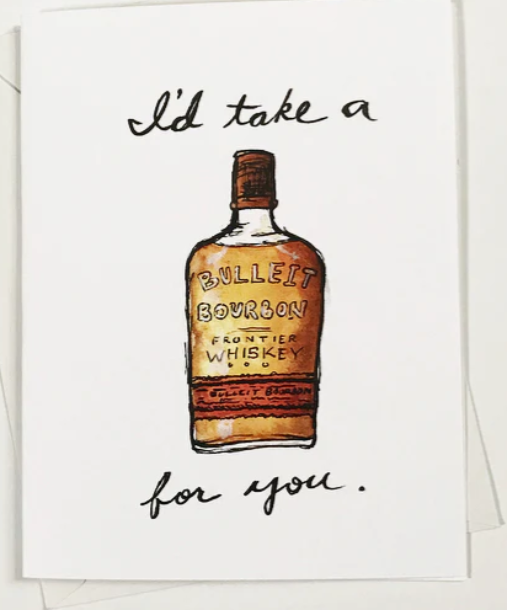 I'd take a
BULLEIT
BOURBON
FRONTIER
WHISKEY
BULLEIT BOURBON
for you.